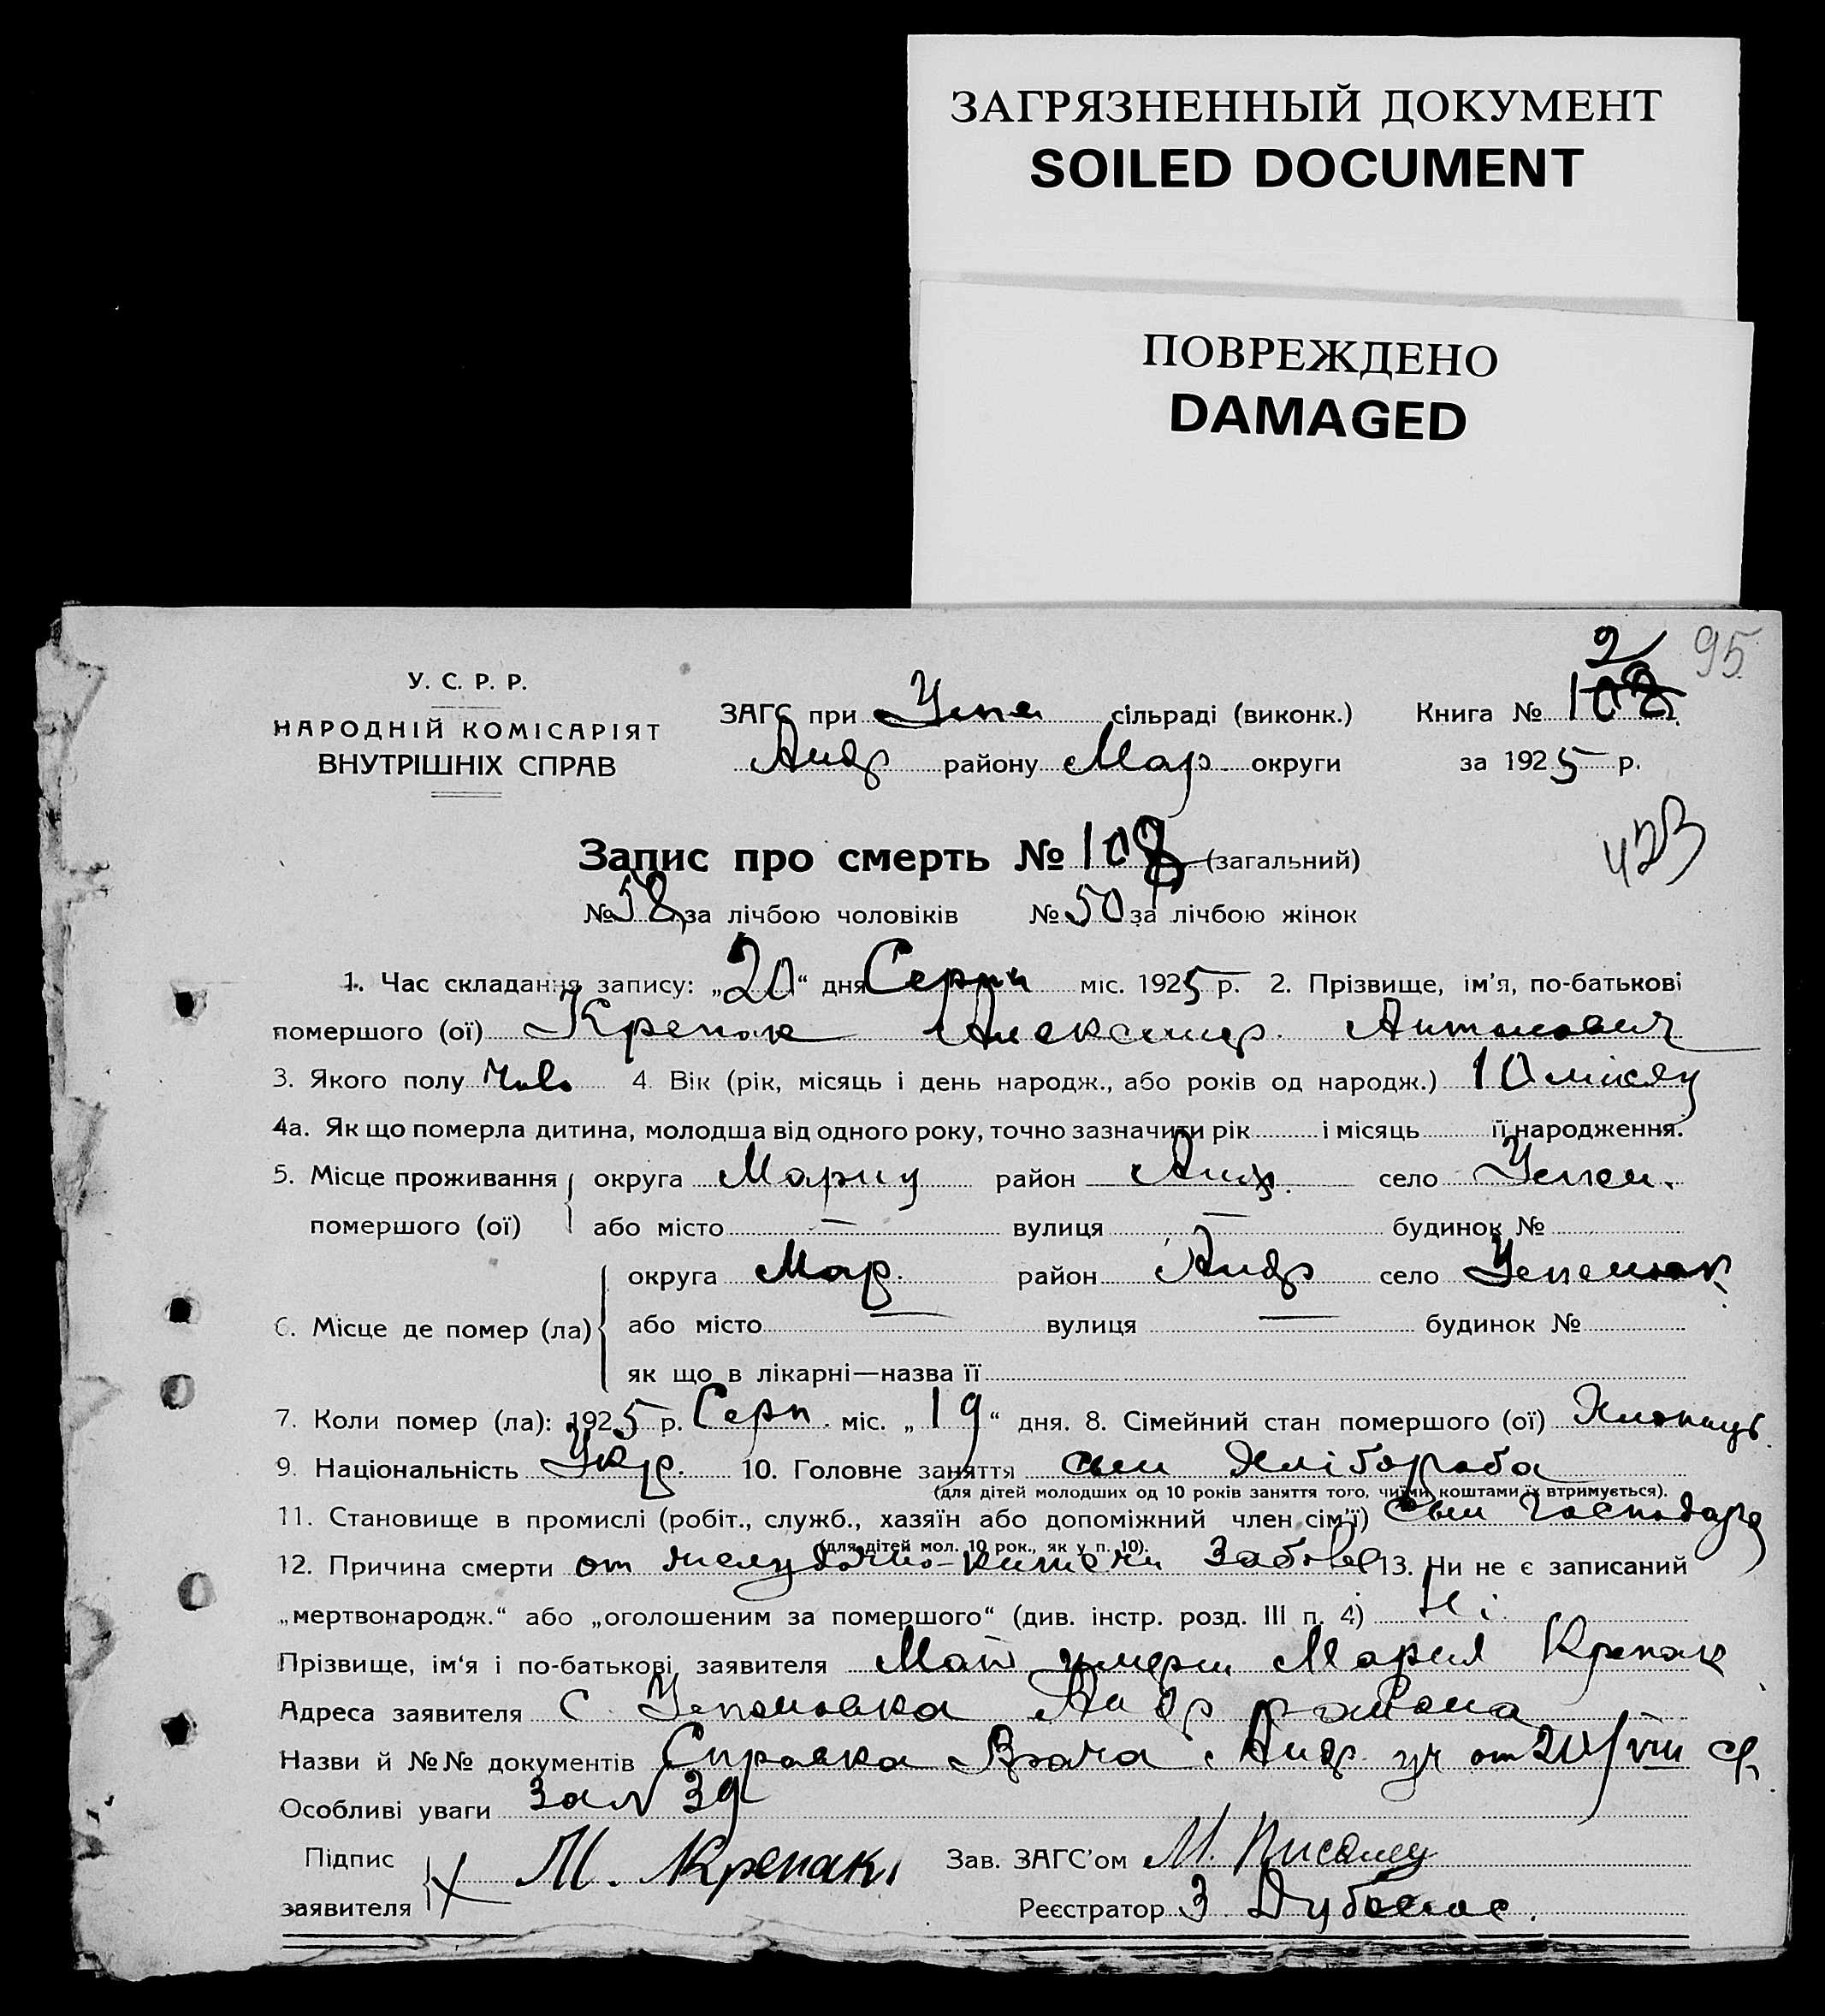 ЗАГРЯЗНЕННЫЙ ДОКУМЕНТ
SOILED DOCUMENT
ПОВРЕЖДЕНО
DAMAGED
2 95
У. С. Р. Р.
НАРОДНІЙ КОМІСАРІЯТ
ВНУТРІШНІХ СПРАВ
ЗАГС при сільраді (виконк.) Книга № 108
Андр району Мар. округи за 1925 р.
423
Запис про смерть № 108 (загальний)
№ 58 за лічбою чоловіків № 50 за лічбою жінок
1. Час складання запису: „20“ дня Серпн міс. 1925 р. 2. Прізвище, ім'я, по-батькові
помершого (ої) Крепак Александр. Антонович
3. Якого полу 4. Вік (рік, місяць і день народж., або років од народж.) 10 місяц
4а. Як що померла дитина, молодша від одного року, точно зазначити рік і місяць її народження.
5. Місце проживання округа Мариу район Андр. село
помершого (ої) або місто — вулиця — будинок №
округа Мар. район Андр село
6. Місце де помер (ла) або місто — вулиця — будинок №
як що в лікарні—назва її
7. Коли помер (ла): 1925 р. Серп. міс. „19“ дня. 8. Сімейний стан помершого (ої) Хлопець
9. Національність Укр. 10. Головне заняття сын хлібороба
(для дітей молодших од 10 років заняття того, чиїми коштами їх втримується).
11. Становище в промислі (робіт., служб., хазяїн або допоміжний член сім'ї) сын господаря
(для дітей мол. 10 рок., як у п. 10).
12. Причина смерти от желудочно-кишечн забол 13. Чи не є записаний
„мертвонародж.“ або „оголошеним за помершого“ (див. інстр. розд. III п. 4) Ні
Прізвище, ім'я і по-батькові заявителя Мать умерш Мария Крепак
Адреса заявителя с. Андр района
Назви й №№ документів Справка Врача Андр. уч от 20/VIII ср.
Особливі уваги за № 39
Підпис
заявителя М. Крепак Зав. ЗАГС'ом М.
Реєстратор З